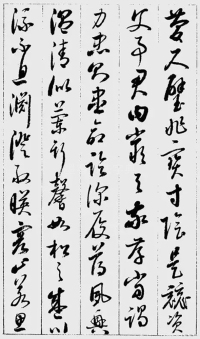 慶尺璧非寶寸陰是競資
父事君曰嚴與敬孝當竭
力忠則盡命臨深履薄夙興
溫清似蘭斯馨如松之盛川
流不息淵澄取暎容止若思